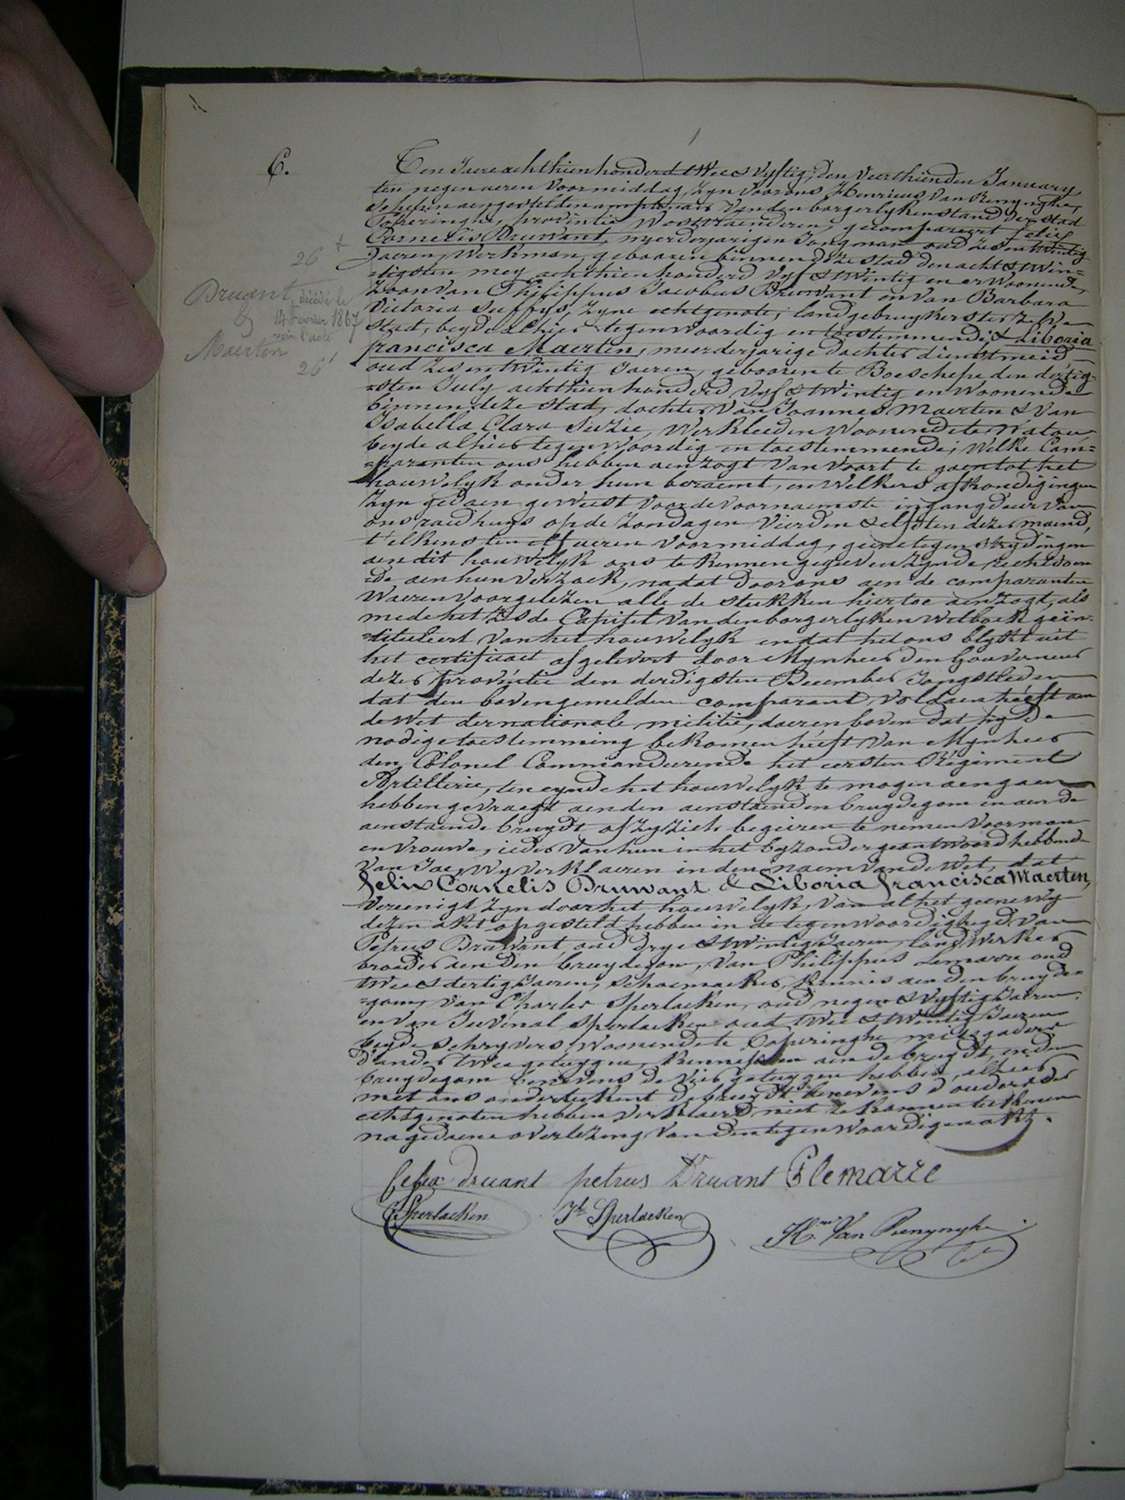 6.
Ten Jaere achthien honderd twee & vyftig, den veerthienden January
ten negen aeren voormiddag, zyn voor ons Henricus Van Renynghe,
Schepen aengestelden amptenaer van den borgerlyken stand der stad
Poperinghe, provintie Westvlaenderen, gecompareert felix
Cornelis Druwant, meerderjarigen Jongman oud zes en twintig
Jaeren, Werkman, geboren binnen deze stad den acht & twin=
=tigsten mey achthien honderd vyf & twintig en er woonende
zoon van Philippus Jacobus Druwant en van Barbara
Victoria zyne echtgenote, landgebruykers te deze
Stad, beyde alhier tegenwoordig en toestemmende; & Liboria
francisca Maerten, meerderjarige dochter dienstmeid
oud zes en twintig Jaeren, geboren te Boeschepe den dertig=
=sten July achthien honderd vyf & twintig en woonende
binnen deze stad, dochter van Joannes Maerten & van
Isabella Clara Werklieden woonende te Watou
beyde alhier tegenwoordig en toestemmende; Welke Com=
=paranten ons hebben aenzogt van voort te gaen tot het
houwelyk onder hun beraemt, en welkers afkondigingen
zyn gedaen geweest voor de voornaemste ingangdeur van
ons raedhuys op de zondagen vierden & elfsten dezer maend,
t'elkens ten elf aeren voormiddag, geene tegenstrydingen
aen dit houwelyk ons te kennen gegeven zynde, rechtdoen=
=de aen hun verzoek, na dat door ons aen de comparanten
waeren voorgelezen alle de stukken hiertoe aenzogt, als
mede het zesde Capittel van den borgerlyken wetboek gein=
=tituleert van het houwelyk en dat het ons blykt uit
het certificaet afgelevert door Mynheer den Gouverneur
dezer provintie den derdigsten December Jongstleden
dat den bovengemelden comparant voldaen heeft aen
de wet der nationale militie, daerenboven dat hy de
nodige toestemming bekomen heeft van Mynheer
den Colonel Commanderende het eersten Régiment
Artillerie, ten eynde het houwelyk te mogen aengaen
hebben gevraegt aen den aenstaenden bruydegom en aen de
aenstaende bruydt of zy zich begeiren te nemen voor man
en vrouwe, ieder van hun in het byzonder geantwoord hebbende
van Jae, wy verklaeren in den naem van de Wet, dat
felix Cornelis Druwant & Liboria francisca Maerten,
vereenigt zyn door het houwelyk, van al het geene wy
dezen akt opgesteld hebben in de tegenwoordigheyd van
Petrus Druwant oud drye & twintig Jaeren, landwerker
broeder aen den bruydegom, van Philippus Lemarre oud
twee & dertig Jaeren, schoenmaker, kennis aen den bruyde=
=gom, van Charles Sperlaeken, oud negen & vyftig Jaeren
en van Juvenal Sperlaeken oud twee & twintig Jaeren
beyde schryvers, woonende te Poperinghe, mitsgaders
d'ander twee getuygen, kennissen aen de bruydt, en den
bruydegom benevens de vier getuygen hebben, alhier
met ons onderteekent de bruydt benevens d'ouders der
echtgenoten hebben verklaerd niet te konnen teekenen
na gedaene overlezing van den tegenwoordigen akt.
26
Druant
décédé le
14 février 1867
&
Maerten
26
felix druant petrus Druant P lemarre
C Sperlaeken Jl Sperlaeken
Hri Van Renynghe